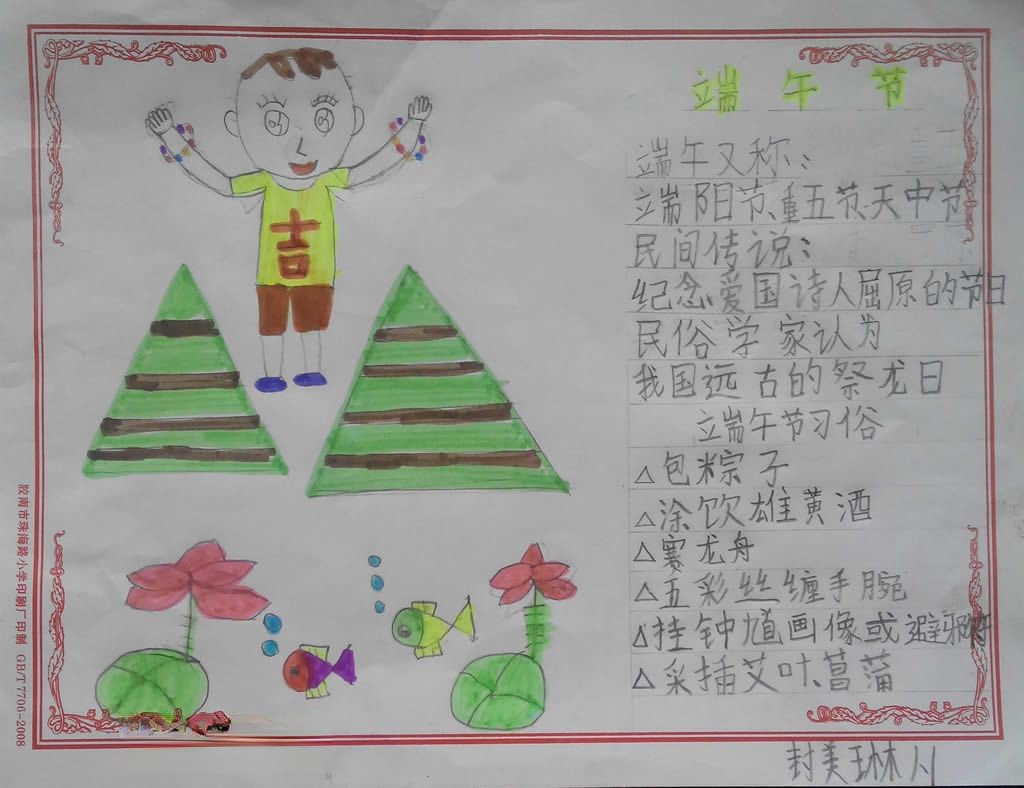 端午节
端午又称：
端阳节、重五节、天中节
民间传说：
纪念爱国诗人屈原的节日
民俗学家认为
我国远古的祭龙日
端午节习俗
△包粽子
△涂饮雄黄酒
△赛龙舟
△五彩丝缠手腕
△挂钟馗画像或避邪符
△采插艾叶、菖蒲
封美琳
吉
胶南市珠海路小学印刷厂印制 GB/T7706-2008